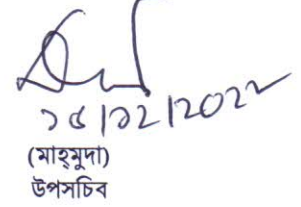 ১৫/১২/২০২২
(মাহ্‌মুদা)
উপসচিব